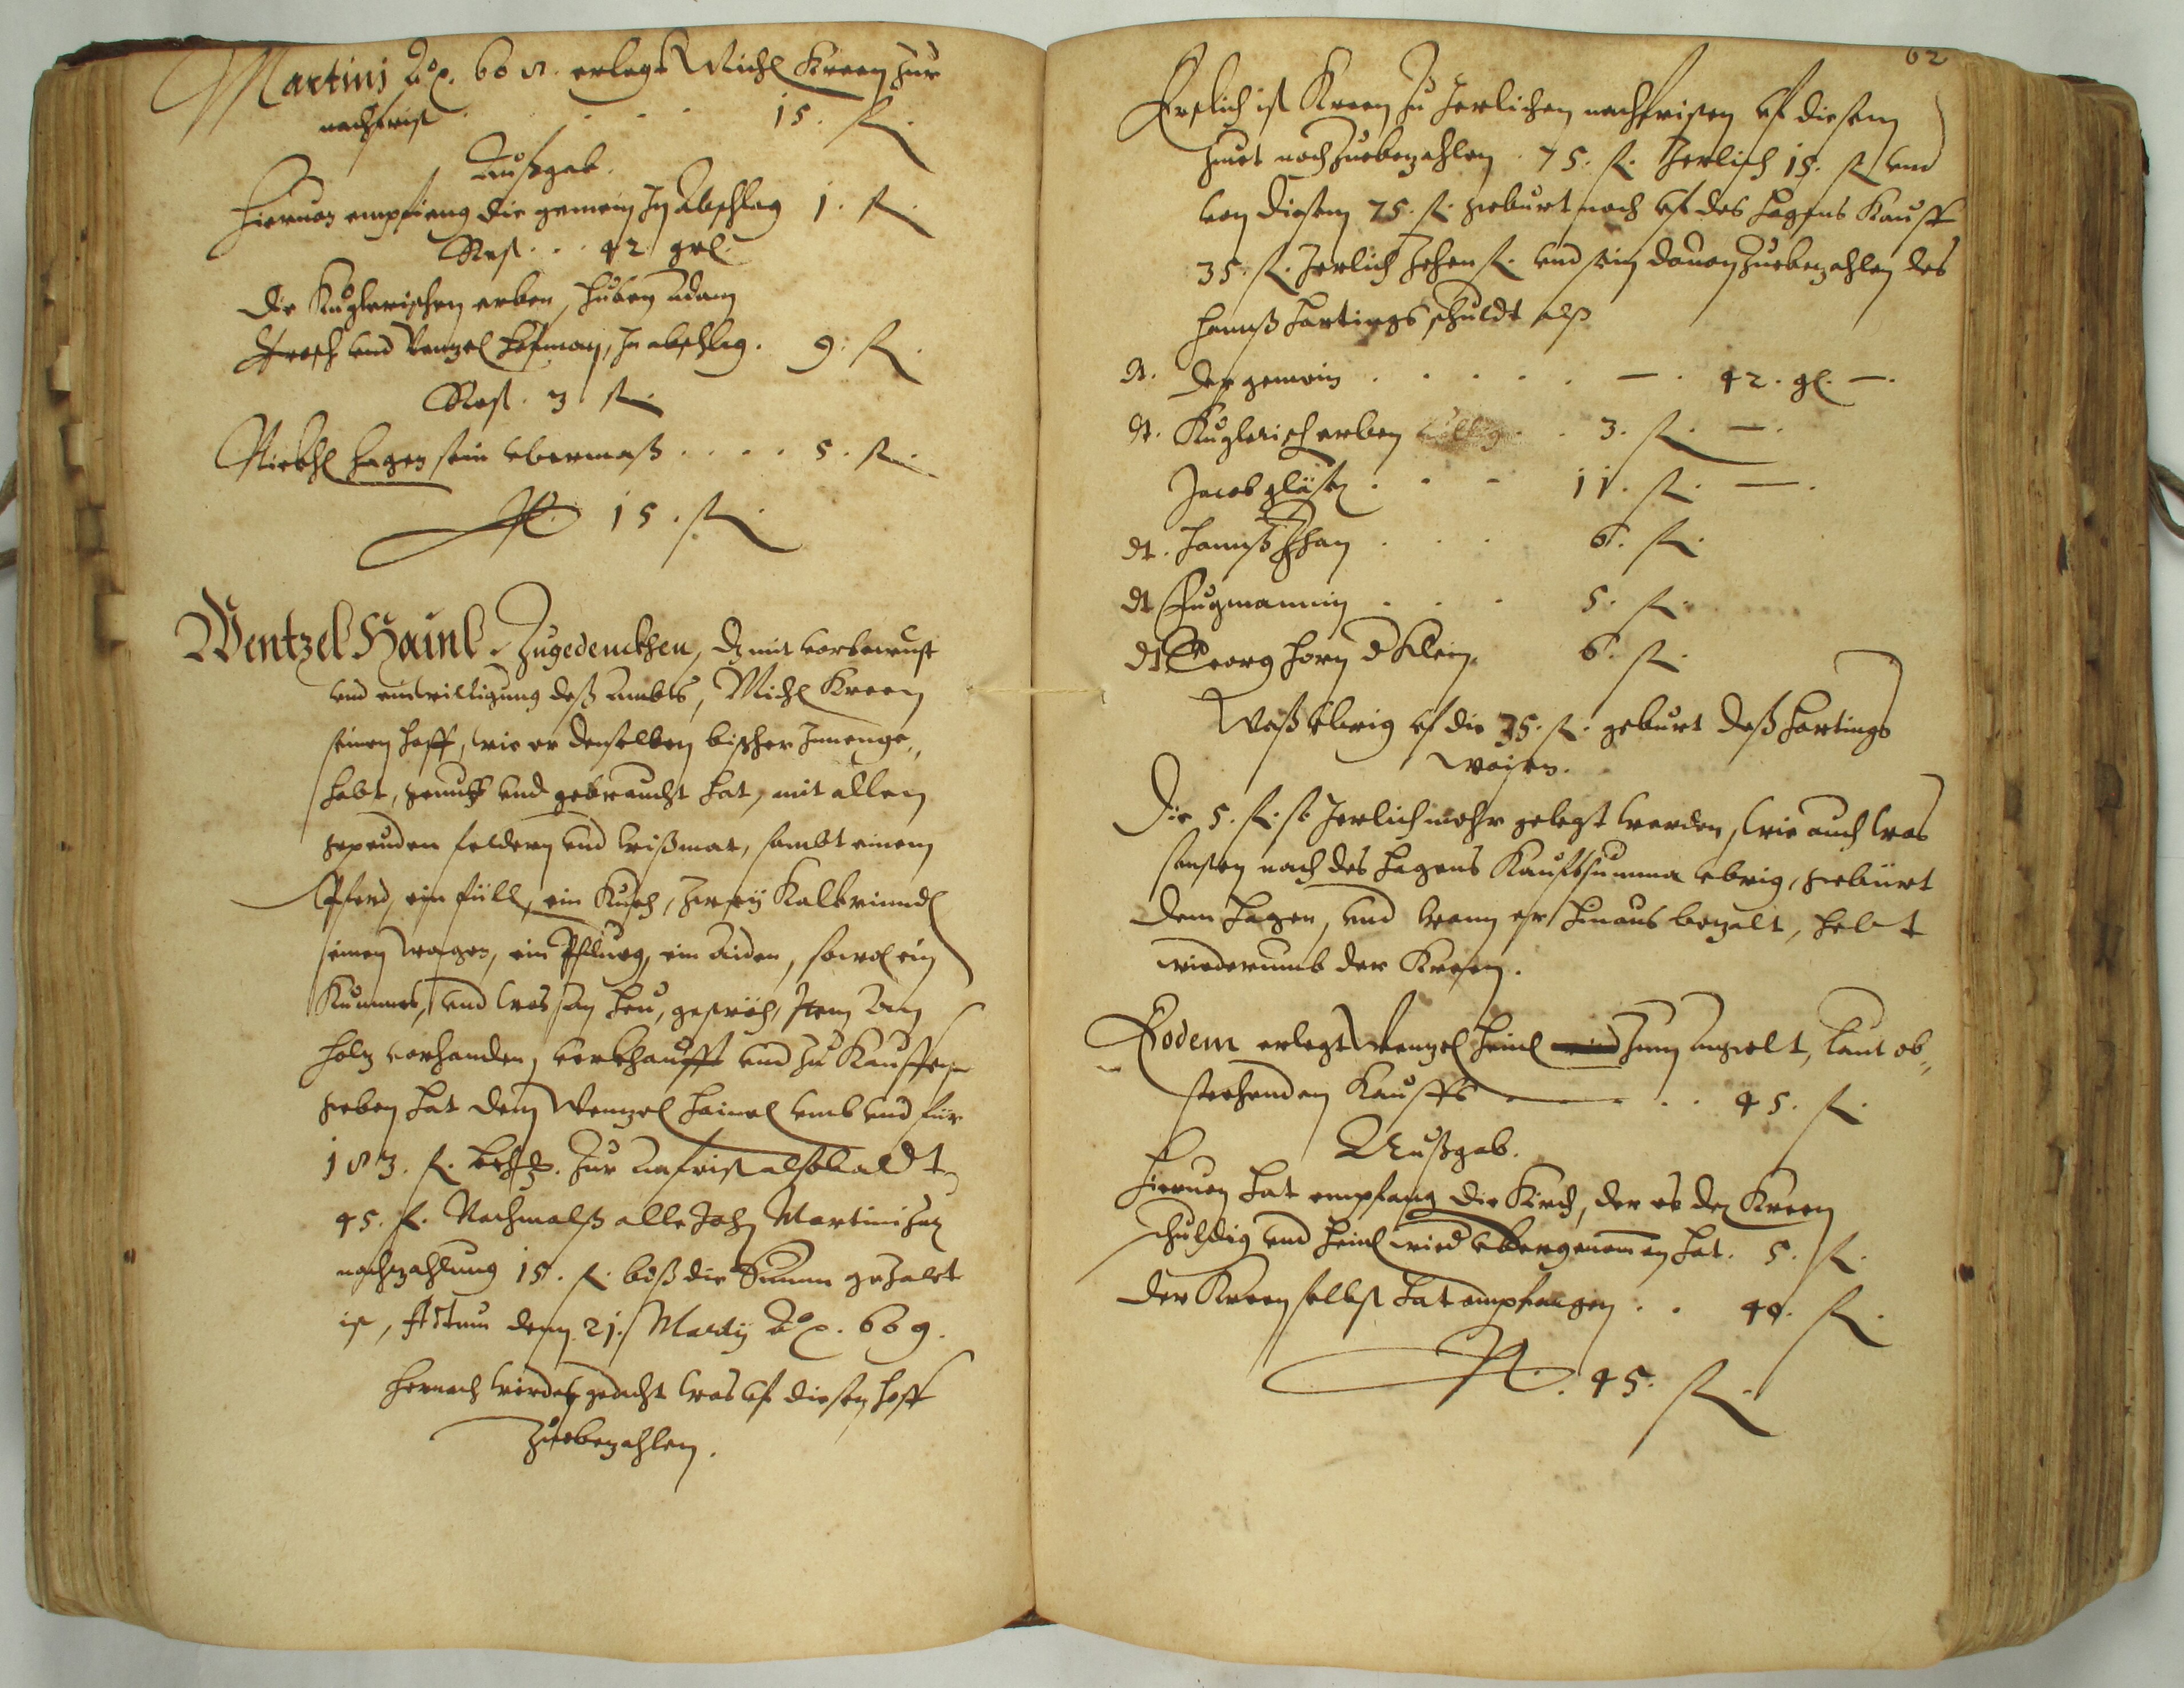 Martinj Aō. 608. erlegt Michl Kreen zur
nachfrist . . . . 15. fl.
Außgab.
Hieruon empfieng die gemein In Abschlag 1. fl.
Rest . . 42 gl.
Die Kuglerischen erben, Huben Adam
Frosch vnd Wenzel Hofman, In abschlag. 9. fl.
Rest . 3. fl.
Michl Hagen sein vbermaß . . . . 5. fl.
15. fl.
Wentzel Hainl. Zugedenckhen, dz mit vorbewust
vnd einwilligung deß Ambts, Michl Kreen
seinen Hoff, wie er denselben bißher Innenge„
habt, genutzt vnd gebraucht hat, mit allen
gepeuden feldern vnd wißmat, sambt einem
Pferd, ein füll, ein Kueh, zwey Kalbrindl
einen wagen, ein Pflueg, ein Aiden, sowol ein
Kummet, vnd was an Heu, gströh, Item an
holz vorhanden, verkhaufft vnd zu Kauffen
geben hat dem Wenzel Hainel vmb vnd für
183. fl. Zur Anfrist alßbaldt
45. fl. Nachmalß alle Jahr Martini zur
nachzahlung 15. fl. biß die Summ gezalt
ist, Actum denn 21. Martij Aō. 609.
Hernach wirdt gedacht was vf diesen Hoff
Zuebezahlen.
62
Erstlich ist Kreen zu Jerlichen nachfristen vf diesem
guet noch Zuebezahlen . 75. fl. Jerlich 15. fl vnd
von diesem 75. fl. geburt noch vf des Hagens Kauff
35. fl. Jerlich Zehen fl. vnd sein dauon Zuebezahlen des
Hannß Hartings schuldt alß
dt. der gemein . . . . . — . 42. gl. —.
dt. Kuglerisch erben . . 3. fl. —.
Jacob . . . 11. fl. —.
dt. Hannß . . . 6. fl.
dt . . . 5. fl.
dt Georg Horn d Klein. 6. fl.
Waß vbrig vf die 35. fl. geburt deß Hartings
Waisen.
Die 5. fl. so Jerlich mehr gelegt werden, wie auch was
sonsten nach des Hagens Kauffsumma vbrig, gebürt
dem Hagen, vnd wann er hinaus bezalt, hebt
wiederumb der Kreen.
Eodem erlegt Wenzel Heinl zum angelt, laut ob„
stehenden Kauffs . . . 45. fl.
Außgab.
Hieruon hat empfang die Kirch, der es der Kreen
schuldig vnd Heinl wird vbergenommen hat. 5. fl.
Der Kreen selbst hat empfangen . . 40. fl.
45. fl.